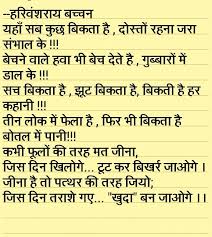 --हरिवंशराय बच्चन
यहाँ सब कुछ बिकता है , दोस्तों रहना जरा
संभाल के !!!
बेचने वाले हवा भी बेच देते है , गुब्बारों में
डाल के !!!
सच बिकता है , झूट बिकता है, बिकती है हर
कहानी !!!
तीन लोक में फेला है , फिर भी बिकता है
बोतल में पानी!!!
कभी फूलों की तरह मत जीना,
जिस दिन खिलोगे... टूट कर बिखर्र जाओगे ।
जीना है तो पत्थर की तरह जियो;
जिस दिन तराशे गए... "खुदा" बन जाओगे ।।